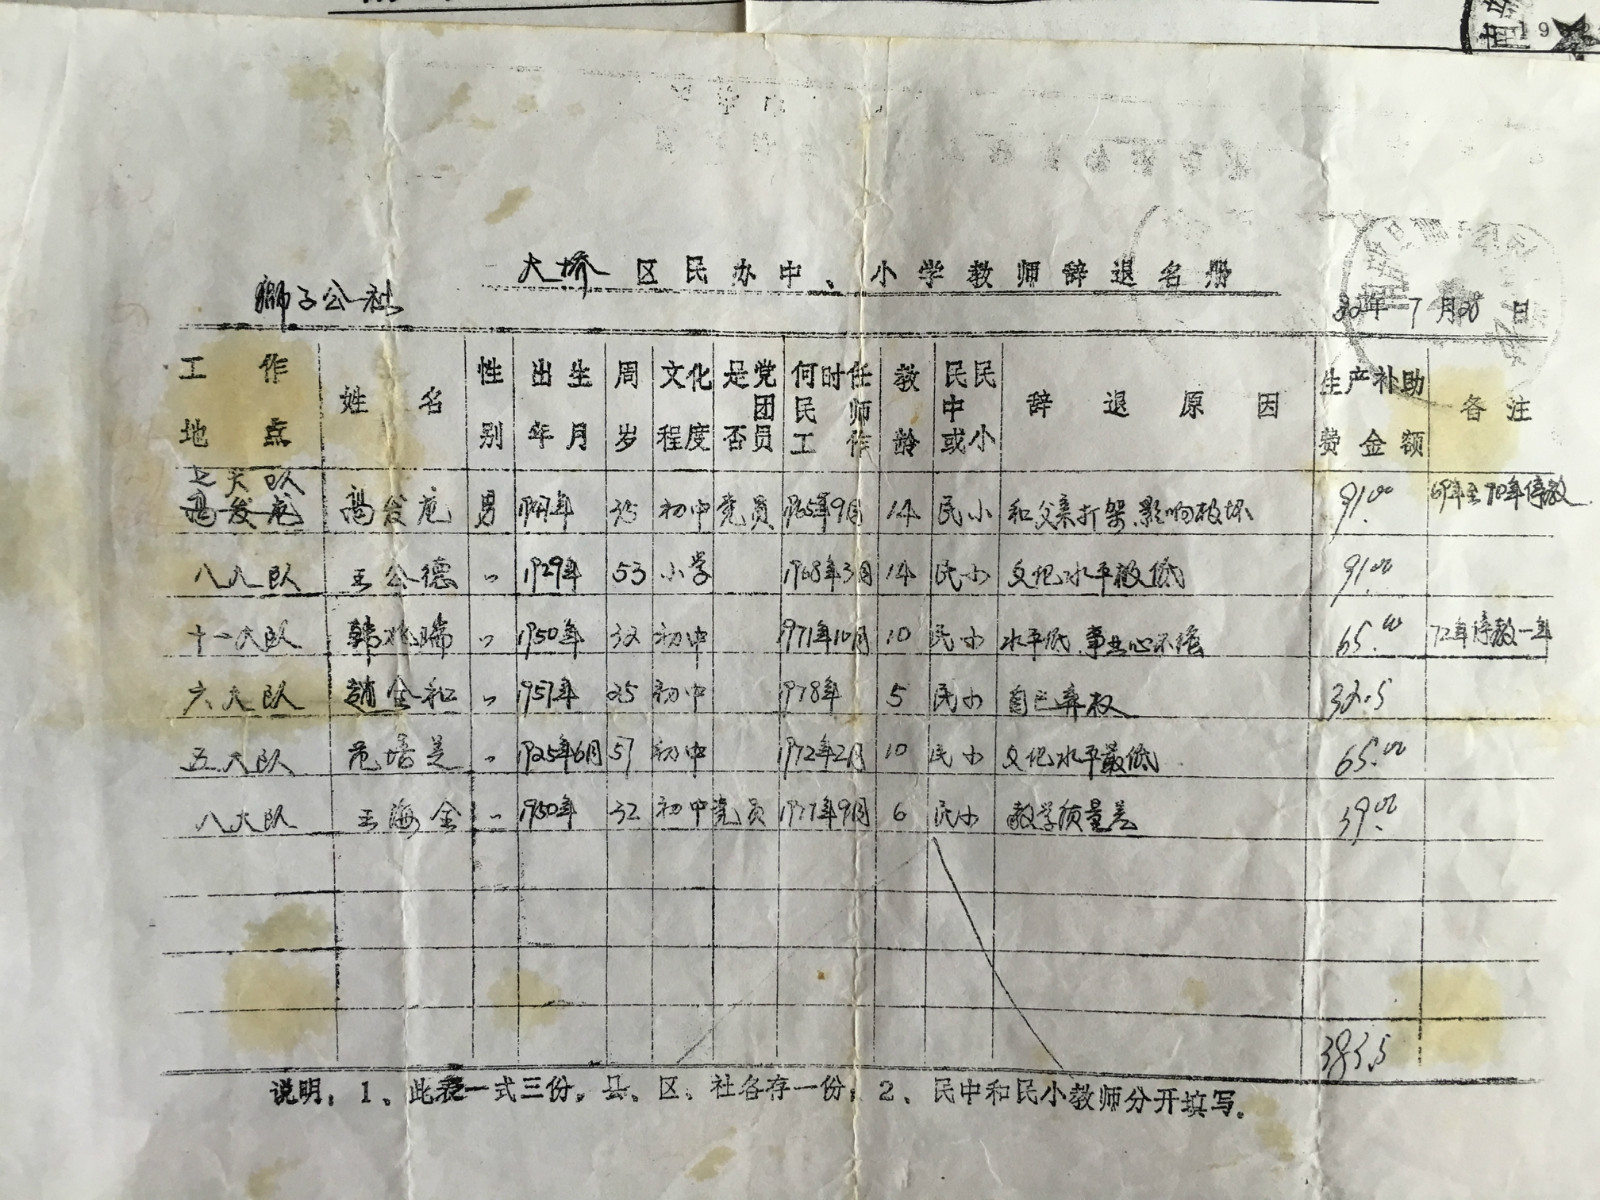 大桥区民办中、小学教师辞退名册
狮子公社 82年7月20日
工作地点 姓名 性别 出生年月 周岁 文化程度 是否党团员 何时任民师工作 教龄 民中或民小 辞退原因 生产补助费金额 备注
七大队 高发龙 男 1947年 35 初中 党员 1965年9月 14 民小 和父亲打架、影响极坏 91.00 69年至70年停教
八大队 王公德 〃 1929年 53 小学 1968年3月 14 民小 文化水平较低 91.00
十一大队 韩兆瑞 〃 1950年 32 初中 1971年10月 10 民小 水平低、事业心不强 65.00 72年停教一年
六大队 赵全和 〃 1957年 25 初中 1978年 5 民小 自己弃权 32.5
五大队 范培芝 〃 1925年6月 57 初中 1972年2月 10 民小 文化水平最低 65.00
八大队 王海金 〃 1950年 32 初中 党员 1977年9月 6 民小 教学质量差 39.00
383.5
说明：1、此表一式三份，县、区、社各存一份；2、民中和民小教师分开填写。